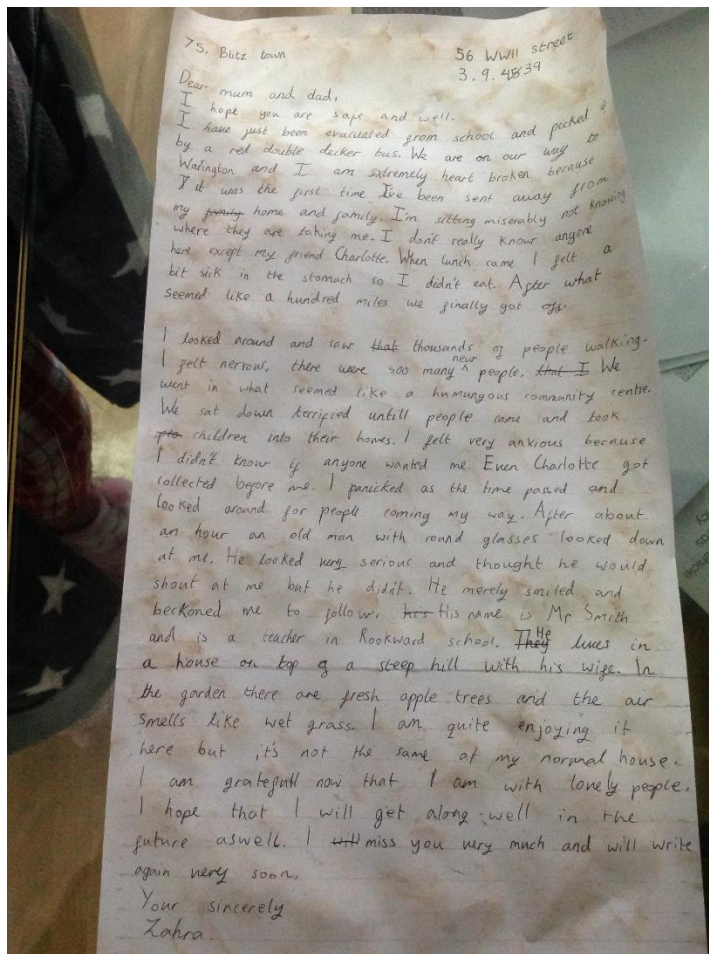 75, Blitz town
56 WWII street
3.9.4839
Dear mum and dad,
I hope you are safe and well.
I have just been evacuated from school and picked
by a red double decker bus. We are on our way to
Warington and I am extremely heart broken because
it was the first time I've been sent away from
my family home and family. I'm sitting miserably not knowing
where they are taking me. I don't really know anyone
here except my friend Charlotte. When lunch came I felt a
bit sick in the stomach so I didn't eat. After what
seemed like a hundred miles we finally got off.
I looked around and saw that thousands of people walking.
I felt nervous, there were soo many new people. that I We
went in what seemed like a humungous community centre.
We sat down terrified untill people came and took
peo children into their homes. I felt very anxious because
I didn't know if anyone wanted me. Even Charlotte got
collected before me. I panicked as the time passed and
looked around for people coming my way. After about
an hour an old man with round glasses looked down
at me. He looked very serious and thought he would
shout at me but he didn't. He merely smiled and
beckoned me to follow. his His name is Mr Smith
and is a teacher in Rookward school. They He lives in
a house on top of a steep hill with his wife. In
the garden there are fresh apple trees and the air
smells like wet grass. I am quite enjoying it
here but it's not the same at my normal house.
I am gratefull now that I am with lovely people.
I hope that I will get along well in the
future aswell. I will miss you very much and will write
again very soon.
Your sincerely
Zahra.